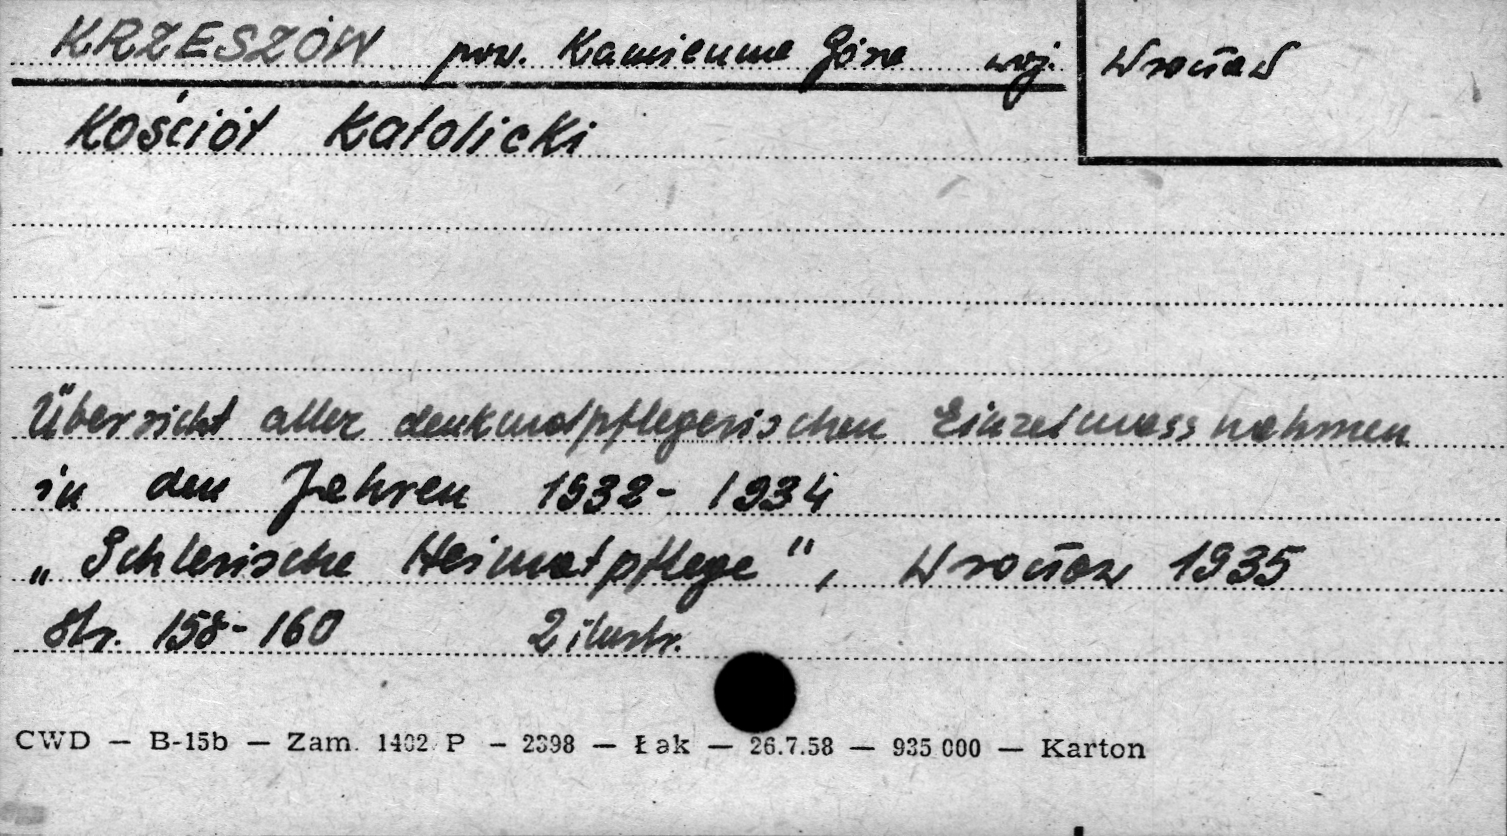 KRZESZÓW pow. Kamienna Góra woj. Wrocław
Kościół Katolicki
Übersicht aller denkmalpflegerischen Einzelmassnahmen
in den Jahren 1932-1934
„Schlesische Heimatpflege", Wrocław 1935
str. 158-160 2 ilustr.
CWD — B-15b — Zam. 1402 P — 2398 — Łak — 26.7.58 — 935 000 — Karton